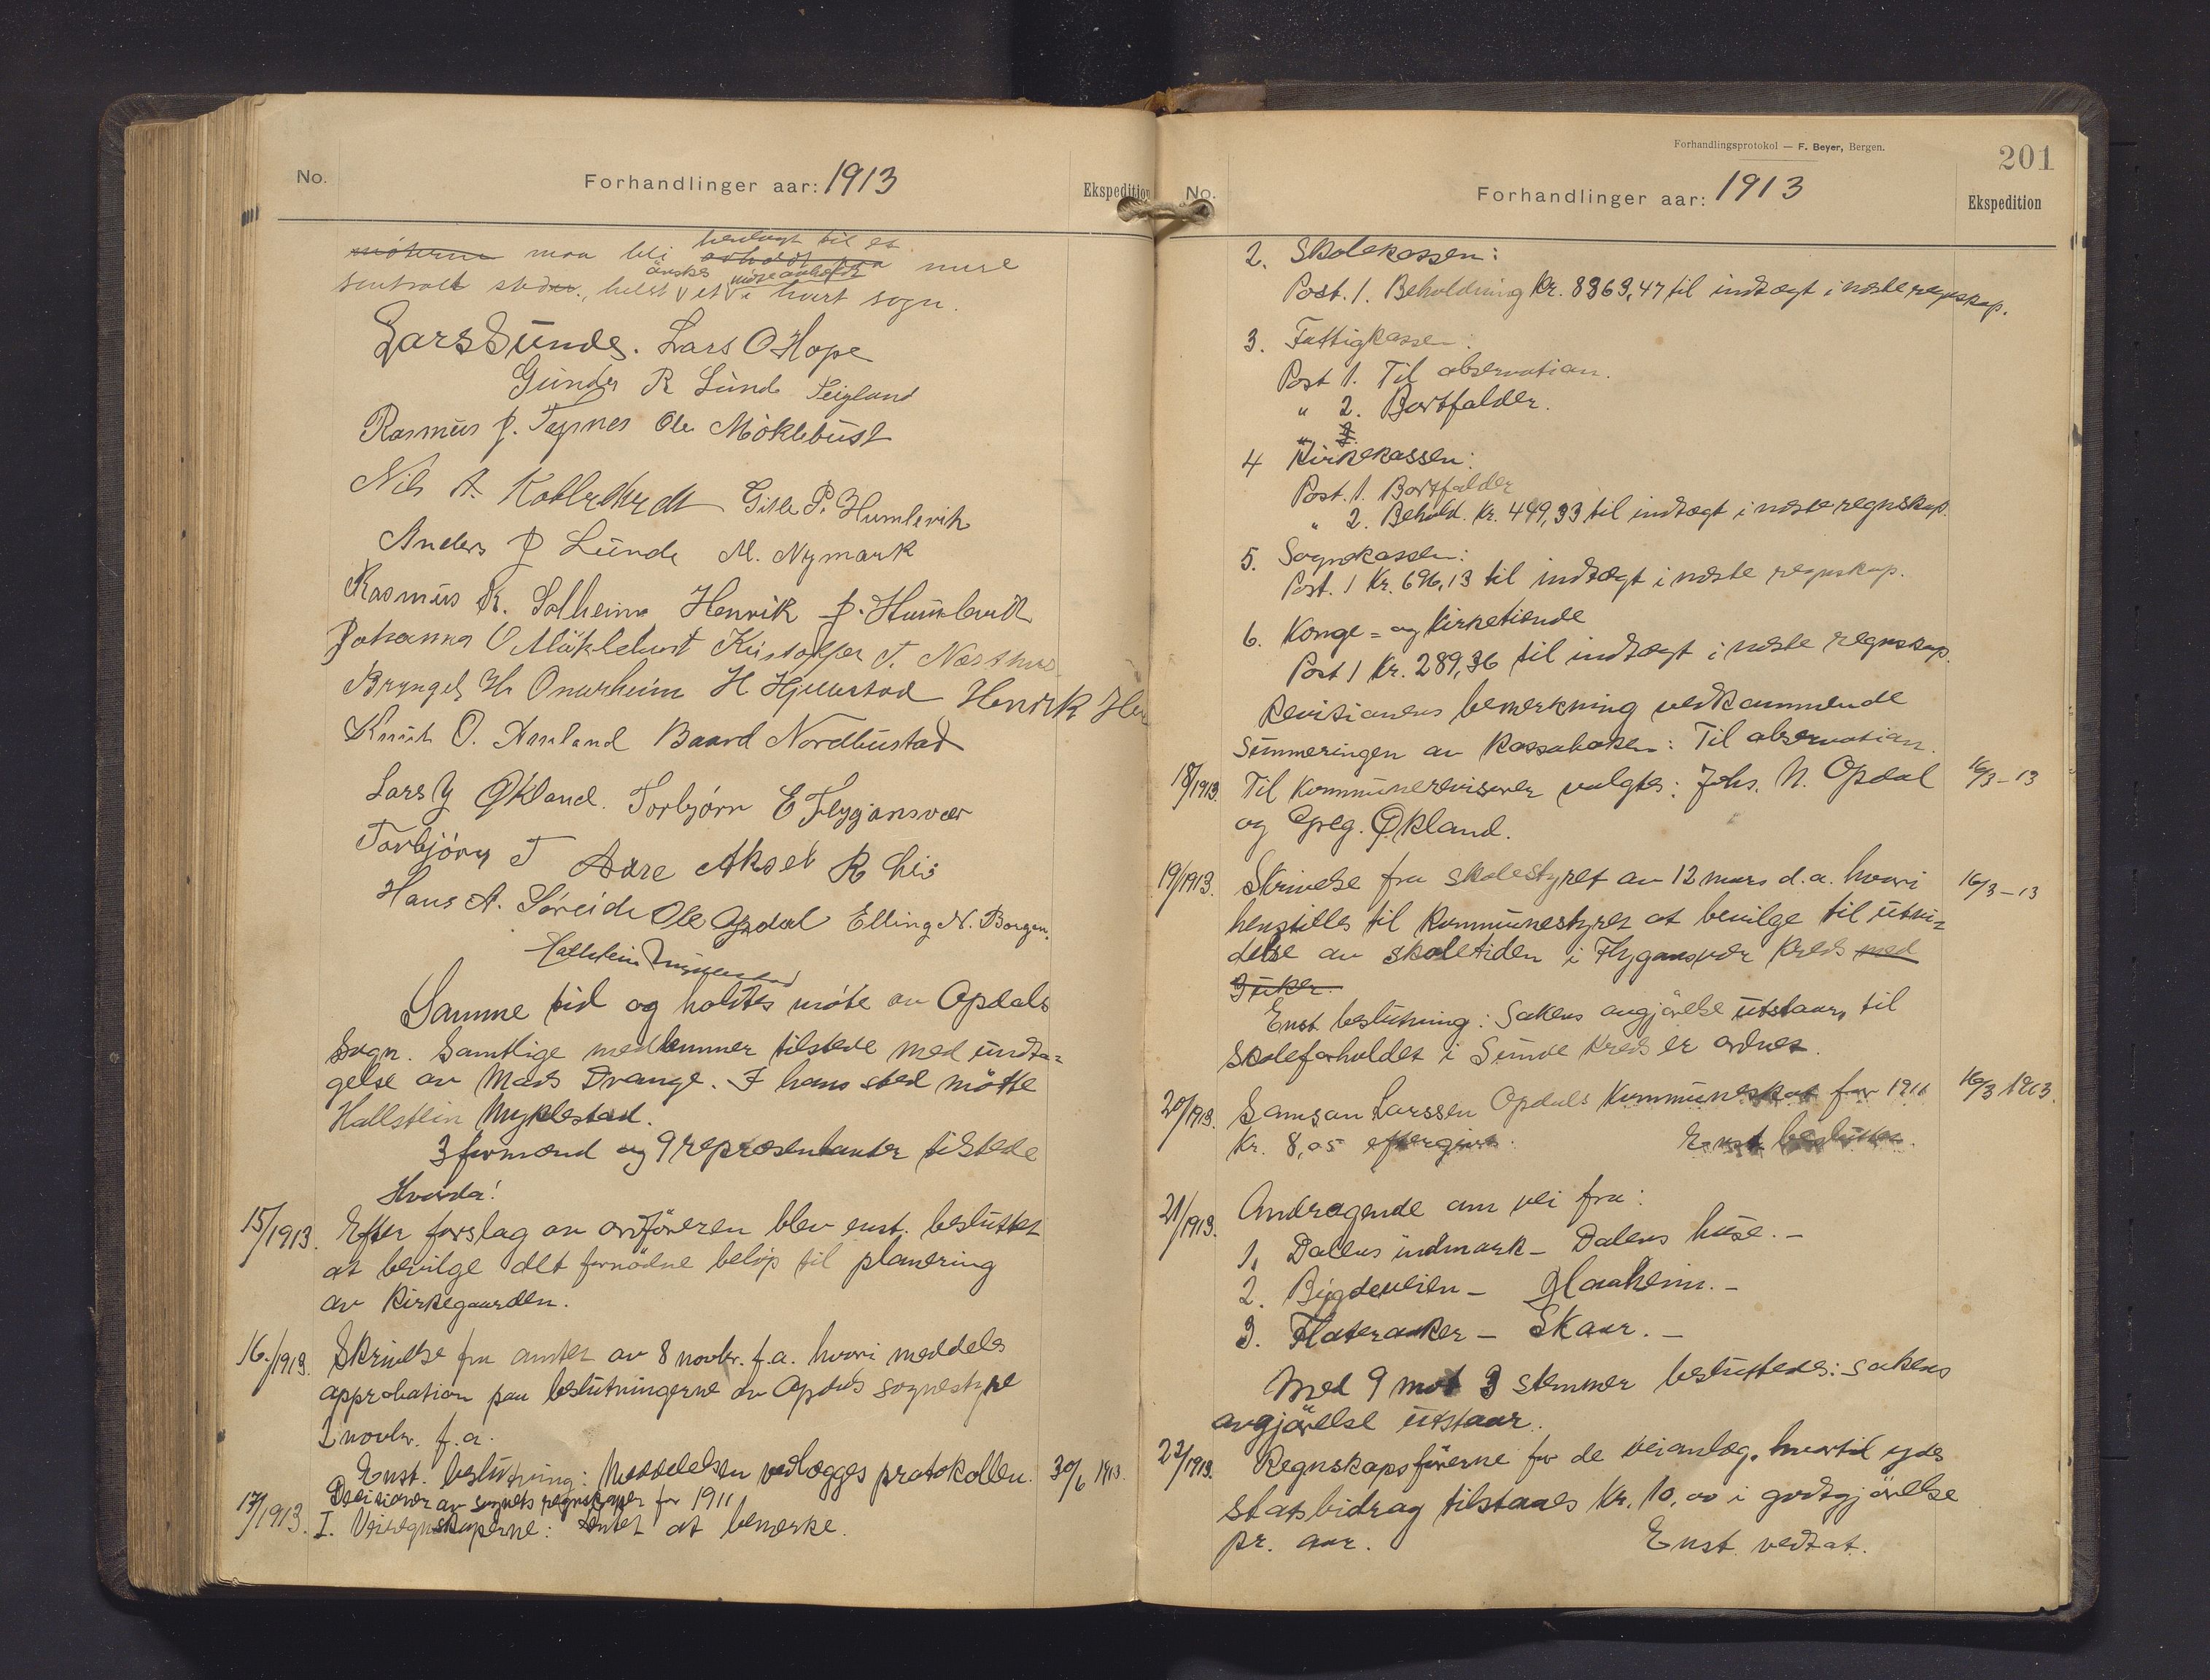 No.
Forhandlinger aar: 1913
Ekspedition
henlagt til et
møterne maa bli avholdt paa mere
ønskes
sentralt steder, helst et i hvert sogn.
Lars Sunde. Lars O Hope
Gunder R Lunde Seigland
Rasmus J. Tepnes Ole Möklebust
Nils A. Gisle P. Humlevik
Anders J Lunde M. Nymark
Rasmus R. Solheim Henrik J. Humlevik
Johannes O Möklebust Kristoffer T. Næsthus
Bryngel H. Onarheim H Hjellestad Henrik
Knut O. Areland Baard Nordhustad
Lars Økland. Torbjørn E Flygjansvær
Torbjörn T Aare Aksel R Lie
Hans A. Søreide Ole Opdal Elling N. Borgen.
Hallstein
Samme tid og holdtes møte av Opdals
sogn. Samtlige medlemmer tilstede med undta-
gelse av Mads Drange. I hans sted mötte
Hallstein Myklestad.
3 formænd og 9 repræsentanter tilstede
Hvorda!
15/1913. Efter forslag av ordföreren blev enst. besluttet
at bevilge det fornödne belöp til planering
av kirkegaarden.
16./1913. Skrivelse fra amtet av 8 novbr. f.a. hvori meddeles
approbation paa beslutningerne av Opdals sognestyre
2 novbr. f.a.
Enst. beslutning: Meddelelsen vedlægges protokollen. 30/6 1913.
Decisioner av sognets regnskaper for 1911
17/1913. I. Veiregnskaperne: Intet at bemerke.
Forhandlingsprotokol — F. Beyer, Bergen.
201
No.
Forhandlinger aar: 1913
Ekspedition
2. Skolekassen:
Post. 1. Beholdning Kr. 8363,47 til indtægt i næste regnskap.
3. Fattigkassen:
Post 1. Til observation.
" 2. Bortfalder.
" 3
4 Kirkekassen:
Post. 1. Bortfalder
" 2. Behold. Kr. 449,33 til indtægt i næste regnskap.
5. Sognekassen:
Post. 1 Kr. 696,13 til indtægt i næste regnskap.
6. Konge- og kirketiende
Post 1 Kr. 289,36 til indtægt i næste regnskap.
Revisionens bemerkning vedkommende
summeringen av kassaboken: Til observation.
18/1913. Til kommunerevisorer valgtes: Johs. N. Opdal 16/3-13
og Greg. Økland.
19/1913. Skrivelse fra skolestyret av 12 mars d.a. hvori 16/3-13
henstilles til kommunestyret at bevilge til utvi-
delse av skoletiden i Flygansvær kreds med
3 uker.
Enst beslutning: Sakens avgjörelse utstaar, til
skoleforholdet i Sunde kreds er ordnet.
20/1913. Samson Larssen Opdals kommuneskat for 1911 16/3 1913.
Kr. 8,05 eftergives. Enst besluttet.
21/1913. Andragende om vei fra:
1, Dalens indmark - Dalens huse. -
2. Bygdeveien - Haaheim. -
3. Flateraaker - Skaar. -
Med 9 mot 3 stemmer besluttedes: Sakens
avgjörelse utstaar.
22/1913. Regnskapsförerne for de veianlæg, hvortil ydes
statsbidrag tilstaaes Kr. 10,00 i godtgjörelse
pr. aar. Enst. vedtat.